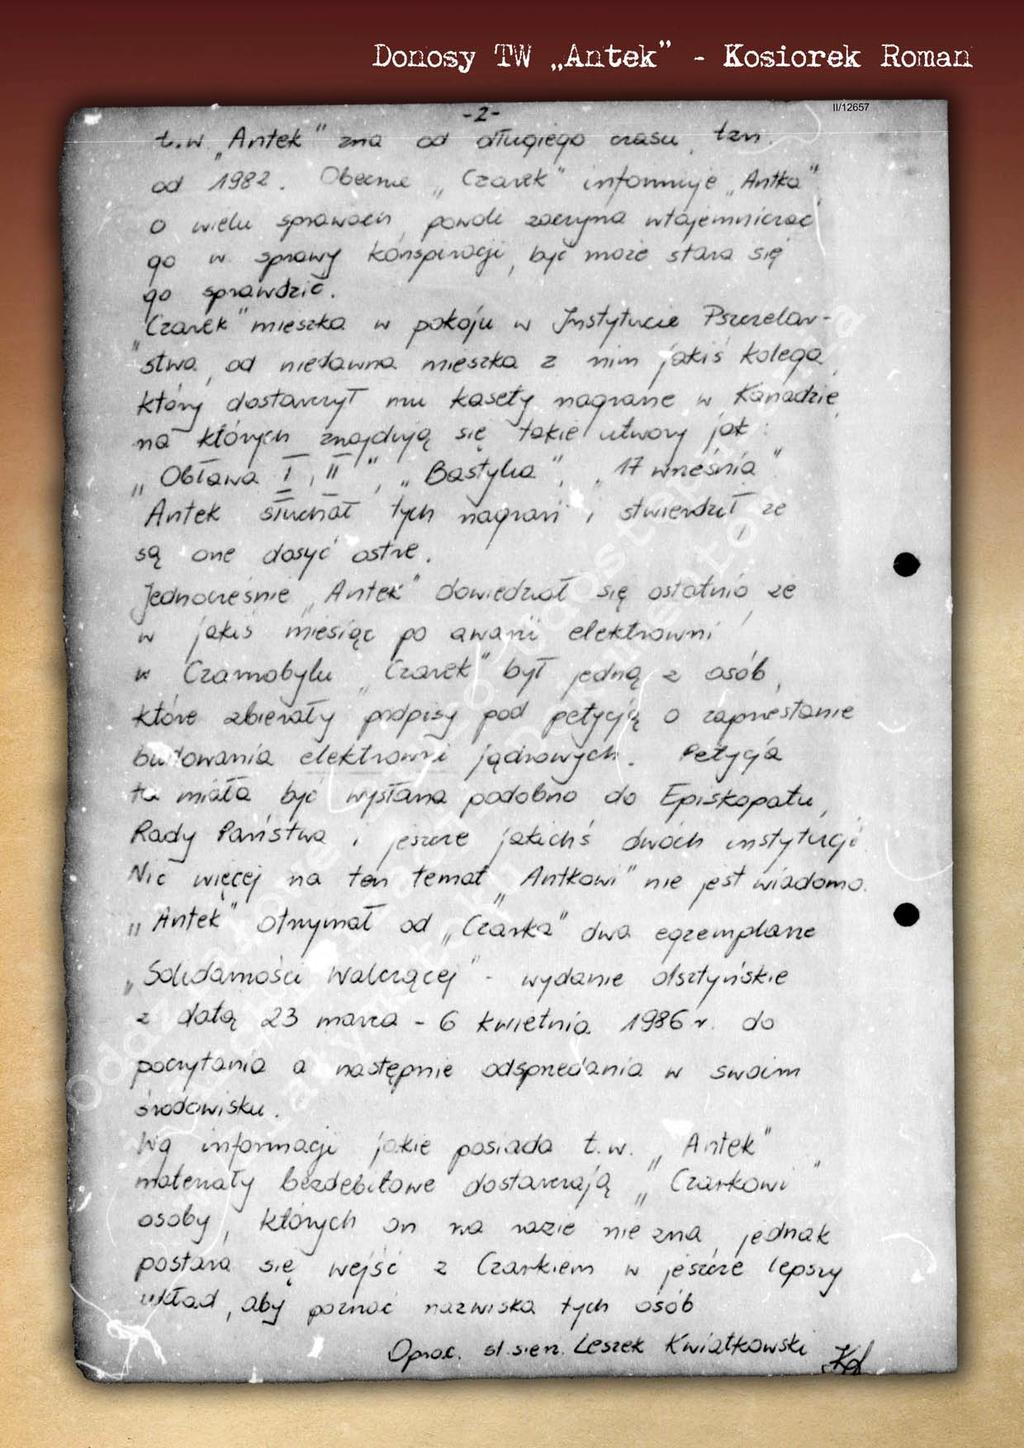 Donosy TW „Antek” - Kosiorek Roman
II/12657
-2-
t.w „Antek” zna od długiego czasu, tzn.
od 1982. Obecnie „Czarek” informuje „Antka”
o wielu sprawach, powoli zaczyna wtajemniczać
go w sprawy konspiracji, być może stara się
go sprawdzić.
„Czarek” mieszka w pokoju w Instytucie Pszczelar-
stwa, od niedawna mieszka z nim jakiś kolega,
który dostarczył mu kasety nagrane w Kanadzie,
na których znajdują się takie utwory jak:
„Obława I, II”, „Bastylia”, „17 września”.
Antek słuchał tych nagrań i stwierdził, że
są one dosyć ostre.
Jednocześnie „Antek” dowiedział się ostatnio, że
w jakiś miesiąc po awarii elektrowni
w Czarnobylu „Czarek” był jedną z osób,
które zbierały podpisy pod petycją o zaprzestanie
budowania elektrowni jądrowych. Petycja
ta miała być wysłana podobno do Episkopatu,
Rady Państwa i jeszcze jakichś dwóch instytucji.
Nic więcej na ten temat „Antkowi” nie jest wiadomo.
„Antek” otrzymał od „Czarka” dwa egzemplarze
„Solidarności Walczącej” - wydanie olsztyńskie
z datą 23 marca - 6 kwietnia 1986 r. do
poczytania a następnie odsprzedania w swoim
środowisku.
Wg informacji jakie posiada t.w. „Antek”
materiały bezdebitowe dostarczają „Czarkowi”
osoby, których on na razie nie zna, jednak
postara się wejść z Czarkiem w jeszcze lepszy
układ, aby poznać nazwiska tych osób
Oprac. st. sierż. Leszek Kwiatkowski